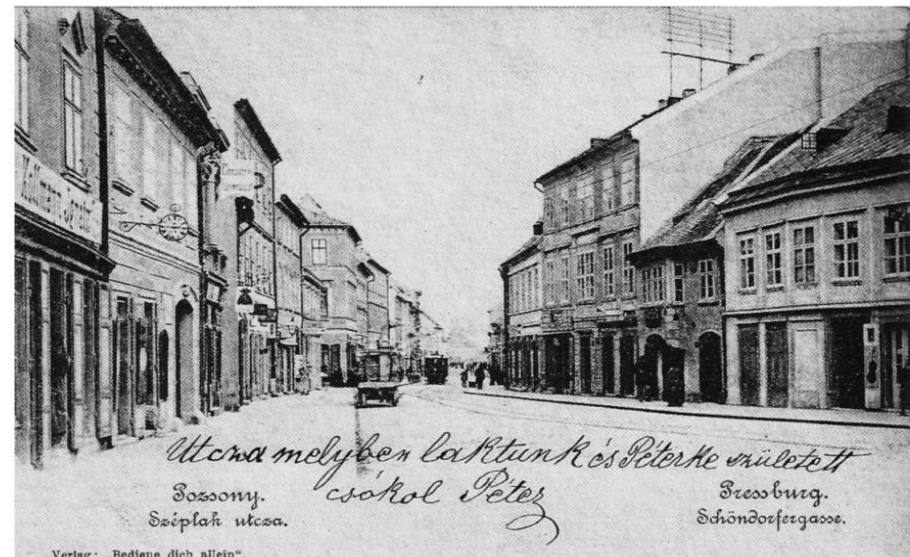 Utcza melyben laktunk és Péterke született
csókol Péter
Pozsony.
Széplak utcza.
Pressburg.
Schöndorfergasse.
Verlag: „Bediene dich allein“.